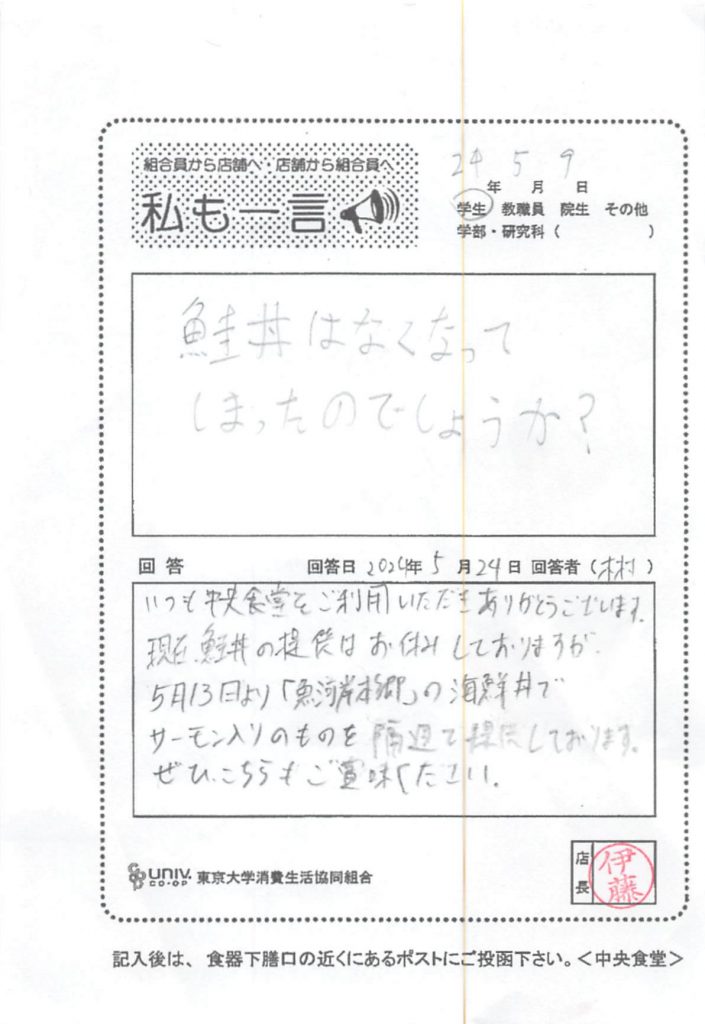 組合員から店舗へ・店舗から組合員へ
私も一言
24 5 9
年 月 日
学生 教職員 院生 その他
学部・研究科( )
鮭丼はなくなって
しまったのでしょうか?
回答 回答日 2024年 5月24日 回答者(木村)
いつも中央食堂をご利用いただきありがとうございます。
現在、鮭丼の提供はお休みしておりますが、
5月13日より「魚河岸本郷」の海鮮丼で
サーモン入りのものを隔週で提供しております。
ぜひ、こちらもご賞味ください。
UNIV.
CO-OP
東京大学消費生活協同組合
店長
伊藤
記入後は、食器下膳口の近くにあるポストにご投函下さい。<中央食堂>